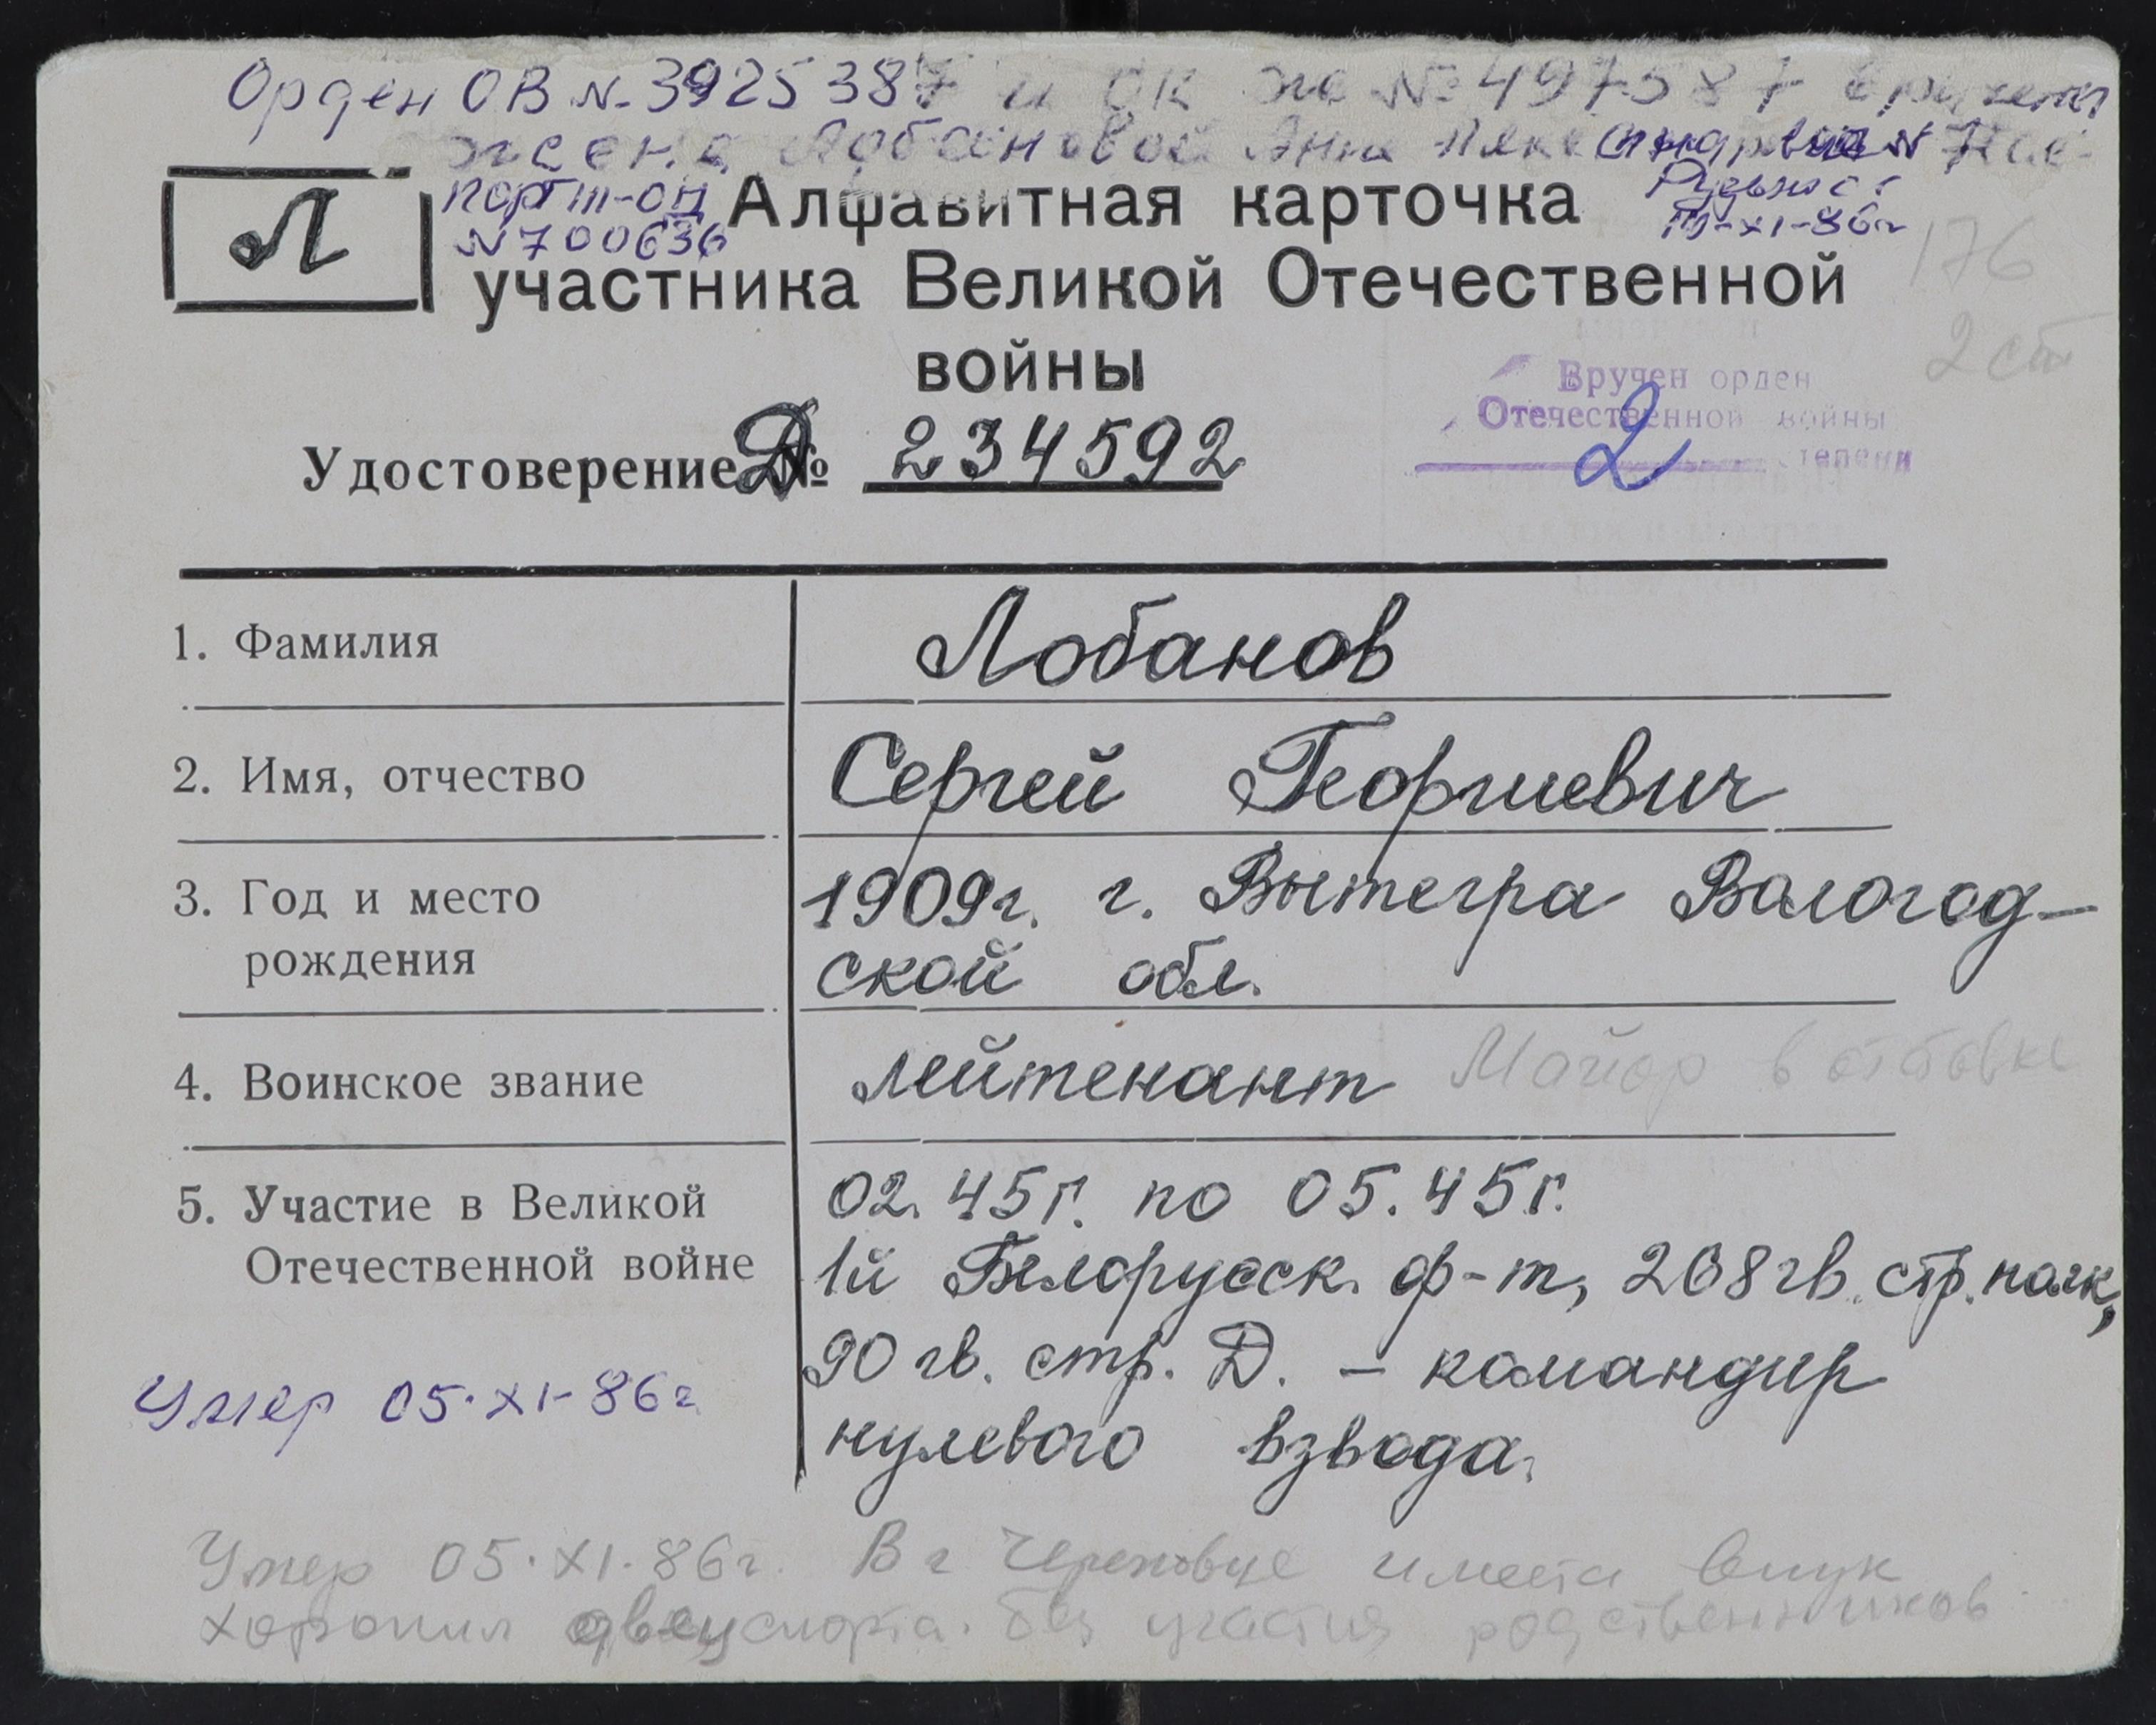 Орден ОВ № 3925387 и ОК № 497587 вручены
жене Лобановой Анне Александровне
порт III-ОД
№ 700636
Л
Алфавитная карточка
участника Великой Отечественной
войны
XI-86г
176
2 ст
Вручен орден
Отечественной войны
2 степени
Удостоверение Д № 234592
1. Фамилия
Лобанов
2. Имя, отчество
Сергей Георгиевич
3. Год и место
рождения
1909г. г. Вытегра Вологод-
ской обл.
4. Воинское звание
лейтенант Майор в отставке
5. Участие в Великой
Отечественной войне
02.45г. по 05.45г.
1й Белорусск. ф-т, 268 гв. стр. полк,
90 гв. стр. Д. – командир
нулевого взвода.
Умер 05.XI-86г
Умер 05.XI.86г. В г Череповце имеется внук
хоронил без участия родственников